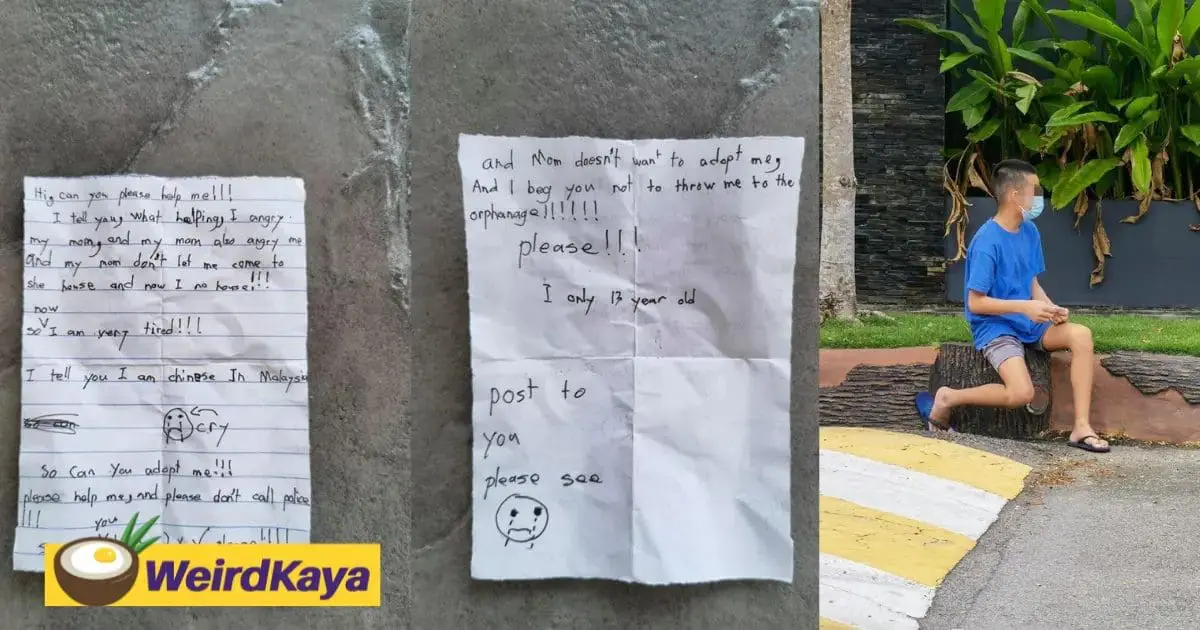 Hi, can you please help me!!!
I tell you, what helping, I angry
my mom, and my mom also angry me
and my mom don't let me come to
she house and now I no house!!!
now
so V I am very tired!!!
I tell you I am chinese In Malaysia
cry
So can you adopt me!!!
please help me, and please don't call police
!!!
you
and Mom doesn't want to adopt me,
And I beg you not to throw me to the
orphanage)!!!!!
please!!!
I only 13 year old
post to
you
please see
WeirdKaya